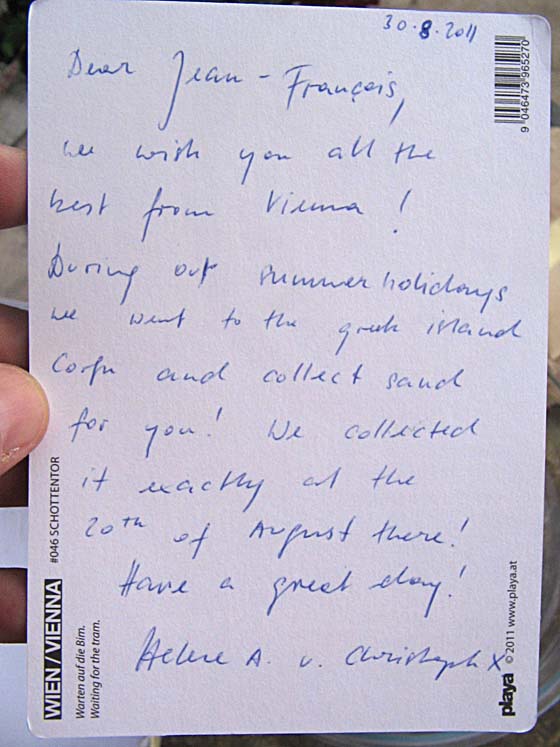 30.8.2011
Dear Jean-François,
we wish you all the
best from Vienna!
During our summer holidays
we went to the greek island
Corfu and collect sand
for you! We collected
it exactly at the
20th of August there!
Have a great day!
Helene A. u. Christoph X
9 046473 965270
#046 SCHOTTENTOR
WIEN/VIENNA
Warten auf die Bim.
Waiting for the tram.
playa © 2011 www.playa.at